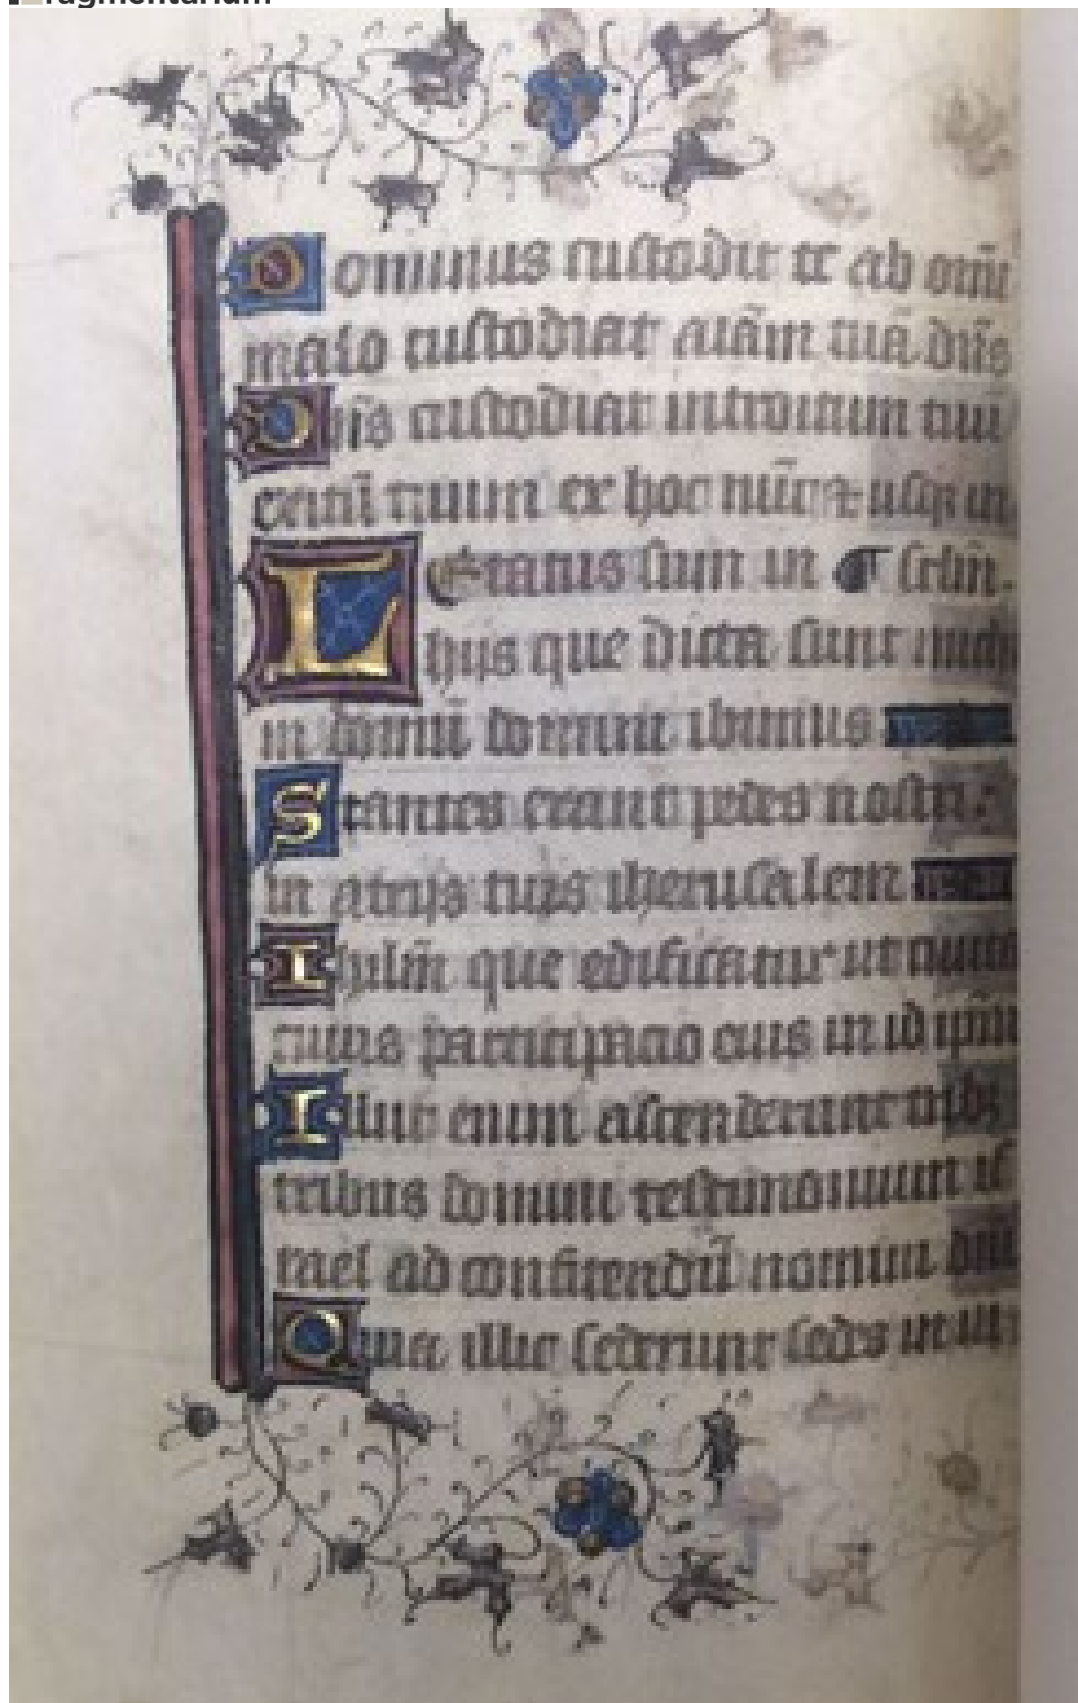 Dominus custodit te ab om̄i
malo custodiat aīam tuā dn̄s
Dn̄s custodiat introitum tuū
exitū tuum ex hoc nūc et usq; in
Letatus sum in sclm̄.
hijs que dicta sunt michi
in domū domini ibimus
Stantes erant pedes nostri
in atrijs tuis iherusalem
Ihrlm̄ que edificatur ut ciuitas
cuius participacio eius in id ipm̄
Illuc enim ascenderunt tribꝫ
tribus domini testimonium is
rael ad confitendū nomini dn̄i
Quia illic sederunt sedes in